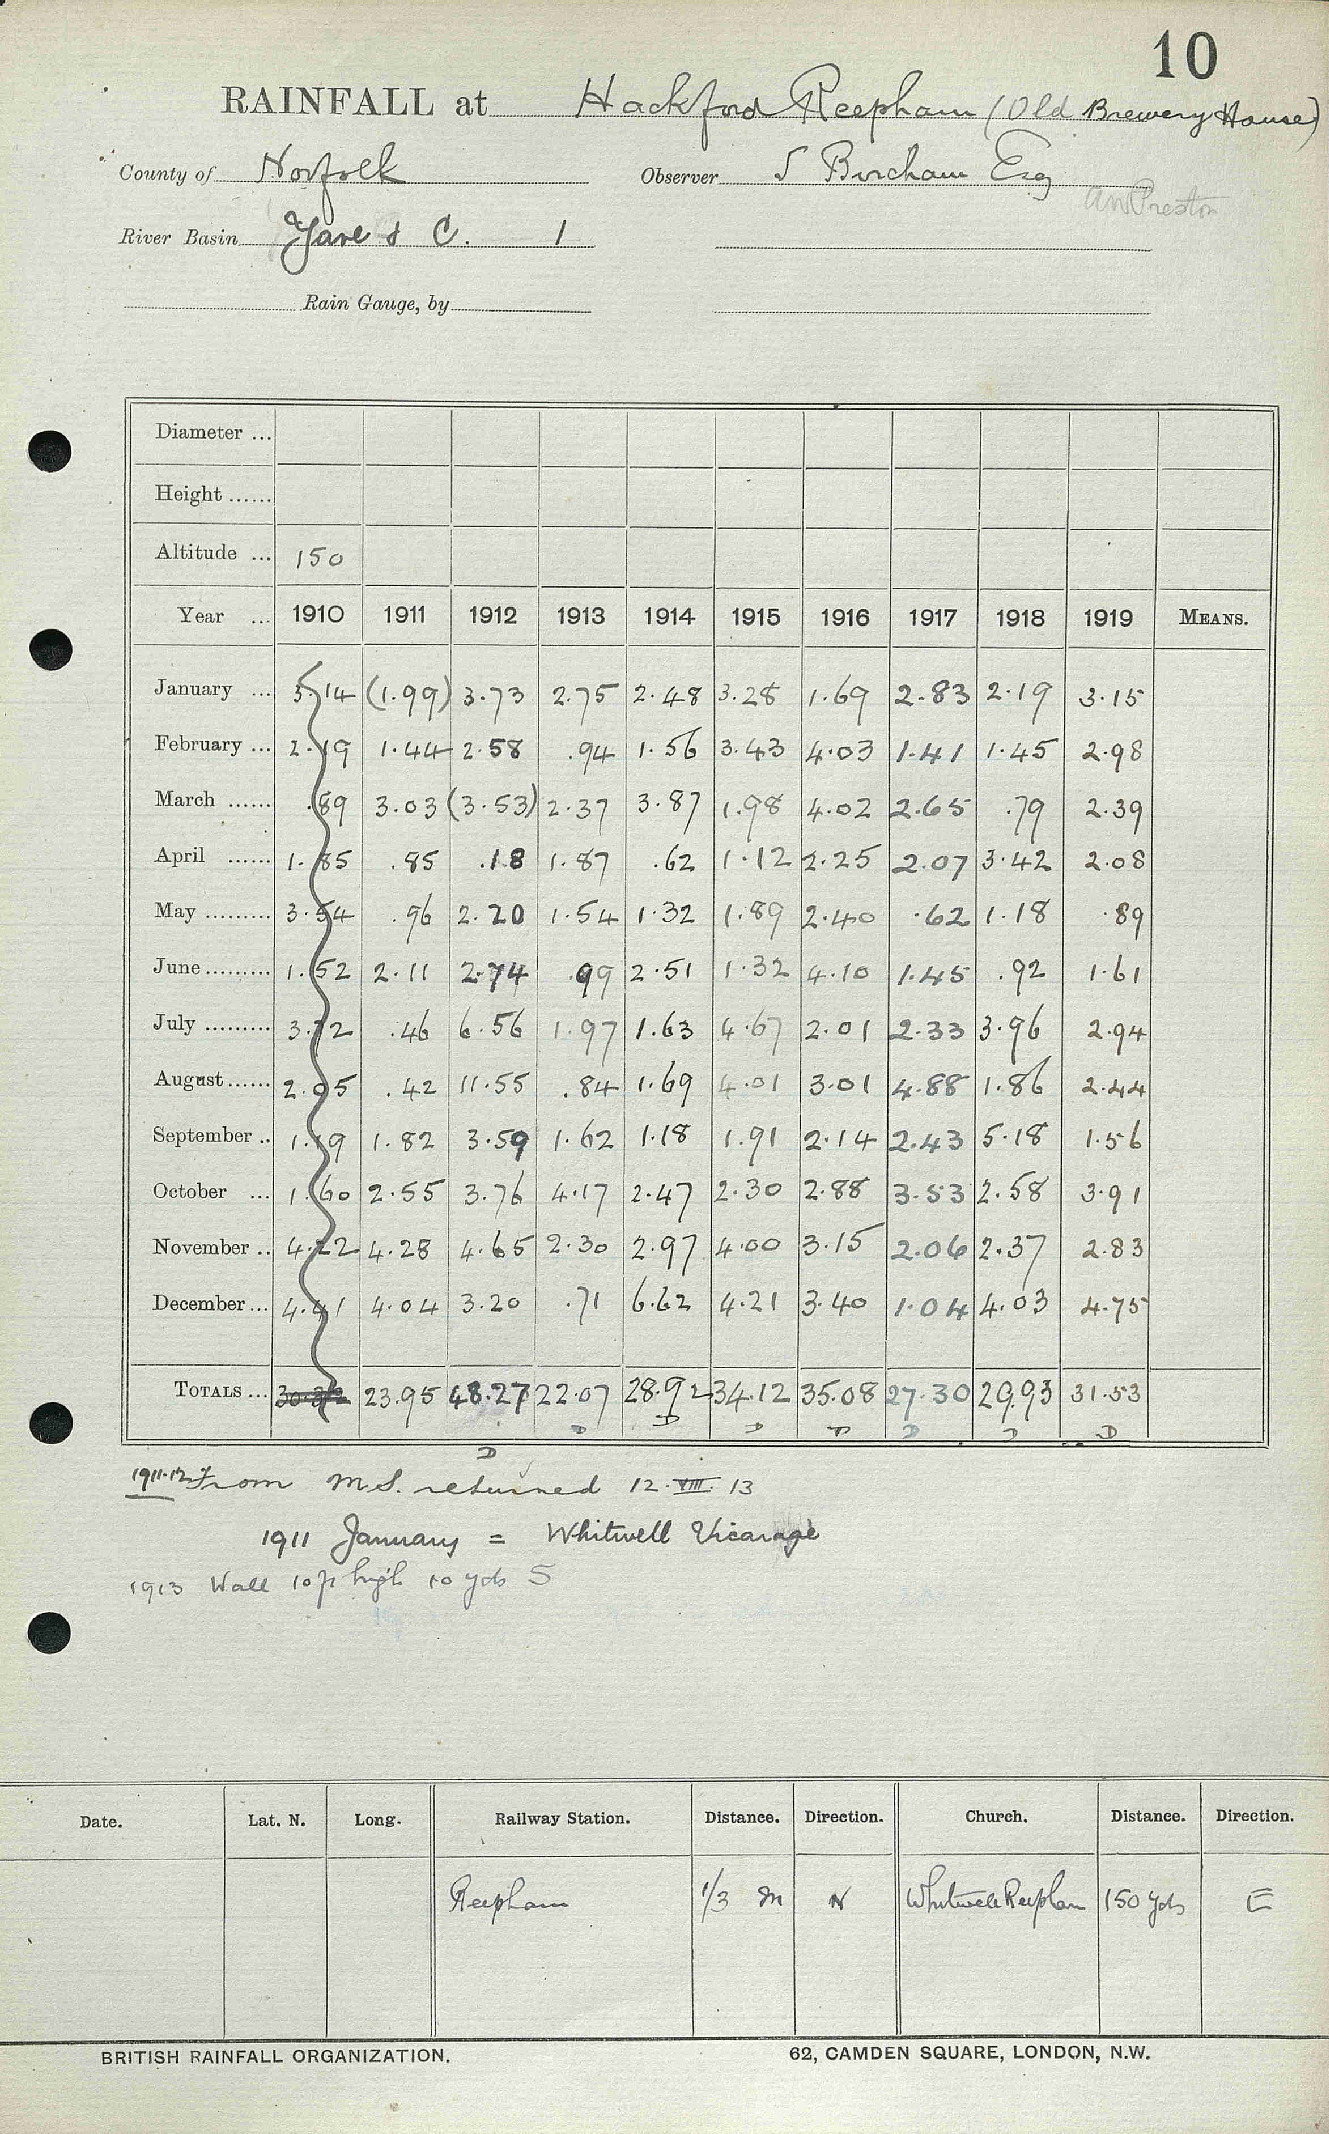 10
RAINFALL at Hackford Reepham (Old Brewery House)
County of Norfolk Observer S Bircham Esq
AW Preston
River Basin Yare & C. 1
Rain Gauge, by
Diameter ...
Height ......
Altitude ... 150
Year ... 1910 1911 1912 1913 1914 1915 1916 1917 1918 1919 MEANS.
January ... 3.14 (1.99) 3.73 2.75 2.48 3.28 1.69 2.83 2.19 3.15
February ... 2.19 1.44 2.58 .94 1.56 3.43 4.03 1.41 1.45 2.98
March ...... .89 3.03 (3.53) 2.37 3.87 1.98 4.02 2.65 .79 2.39
April ...... 1.85 .85 .18 1.87 .62 1.12 2.25 2.07 3.42 2.08
May ......... 3.54 .96 2.20 1.54 1.32 1.89 2.40 .62 1.18 .89
June ......... 1.52 2.11 2.74 .99 2.51 1.32 4.10 1.45 .92 1.61
July ......... 3.72 .46 6.56 1.97 1.63 4.67 2.01 2.33 3.96 2.94
August ...... 2.05 .42 11.55 .84 1.69 4.01 3.01 4.88 1.86 2.44
September .. 1.19 1.82 3.59 1.62 1.18 1.91 2.14 2.43 5.18 1.56
October ... 1.60 2.55 3.76 4.17 2.47 2.30 2.88 3.53 2.58 3.91
November .. 4.22 4.28 4.65 2.30 2.97 4.00 3.15 2.06 2.37 2.83
December ... 4.41 4.04 3.20 .71 6.62 4.21 3.40 1.04 4.03 4.75
TOTALS ... 23.95 48.27 22.07 28.92 34.12 35.08 27.30 29.93 31.53
D D D D D D D D
1911-12 From M.S. returned 12.VIII.13
1911 January = Whitwell Vicarage
1913 Wall 10ft high 10 yds S
Date. Lat. N. Long. Railway Station. Distance. Direction. Church. Distance. Direction.
Reepham 1/3 m N Whitwell Reepham 150 yds E
BRITISH RAINFALL ORGANIZATION. 62, CAMDEN SQUARE, LONDON, N.W.